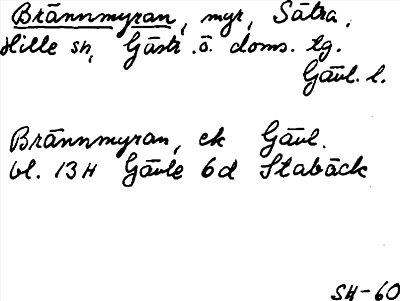 Brännmyran, myr, Sätra,
Hille sn, Gästr. ö. doms. tg.
Gävl. l.
Brännmyran, ek Gävl.
bl. 13H Gävle 6d Stabäck
SH-60